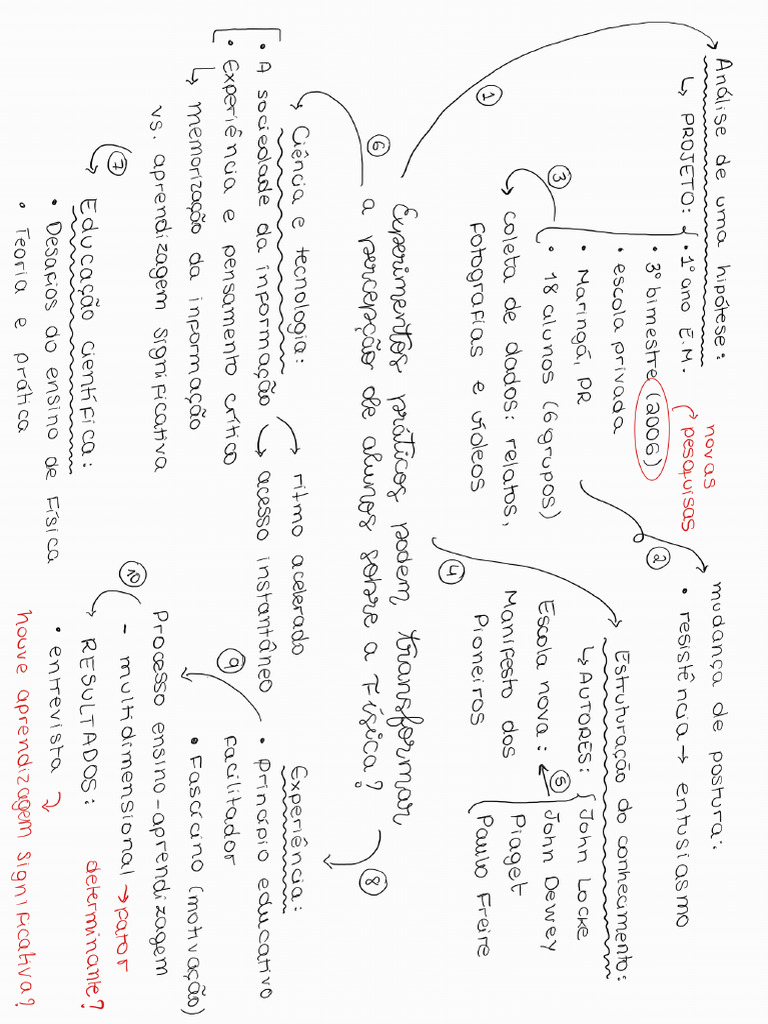 Experimentos práticos podem transformar
a percepção de alunos sobre a Física?
①
Análise de uma hipótese:
↳ PROJETO: • 1º ano E.M.
• 3º bimestre (2006)
novas
pesquisas
• escola privada
• Maringá, PR
• 18 alunos (6 grupos)
②
mudança de postura:
• resistência → entusiasmo
③
coleta de dados: relatos,
fotografias e vídeos
④
Estruturação do conhecimento:
↳ AUTORES: John Locke
⑤
John Dewey
Piaget
Paulo Freire
Escola nova:
Manifesto dos
Pioneiros
⑥
Ciência e tecnologia:
• A sociedade da informação
ritmo acelerado
acesso instantâneo
• Experiência e pensamento crítico
↳ memorização da informação
vs. aprendizagem significativa
⑦
Educação científica:
• Desafios do ensino de Física
• Teoria e prática
⑧
Experiência:
• princípio educativo
facilitador
• Fascício (motivação)
⑨
Processo ensino-aprendizagem
- multidimensional → fator
determinante?
⑩
RESULTADOS:
• entrevista
houve aprendizagem significativa?